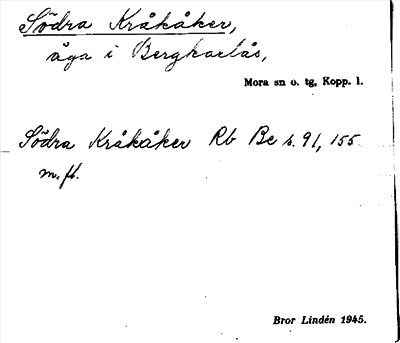 Södra Kråkåker,
åga i Bergkarlås,
Mora sn o. tg, Kopp. l.
Södra Kråkåker Rb Be s. 91, 155
m.fl.
Bror Lindén 1945.